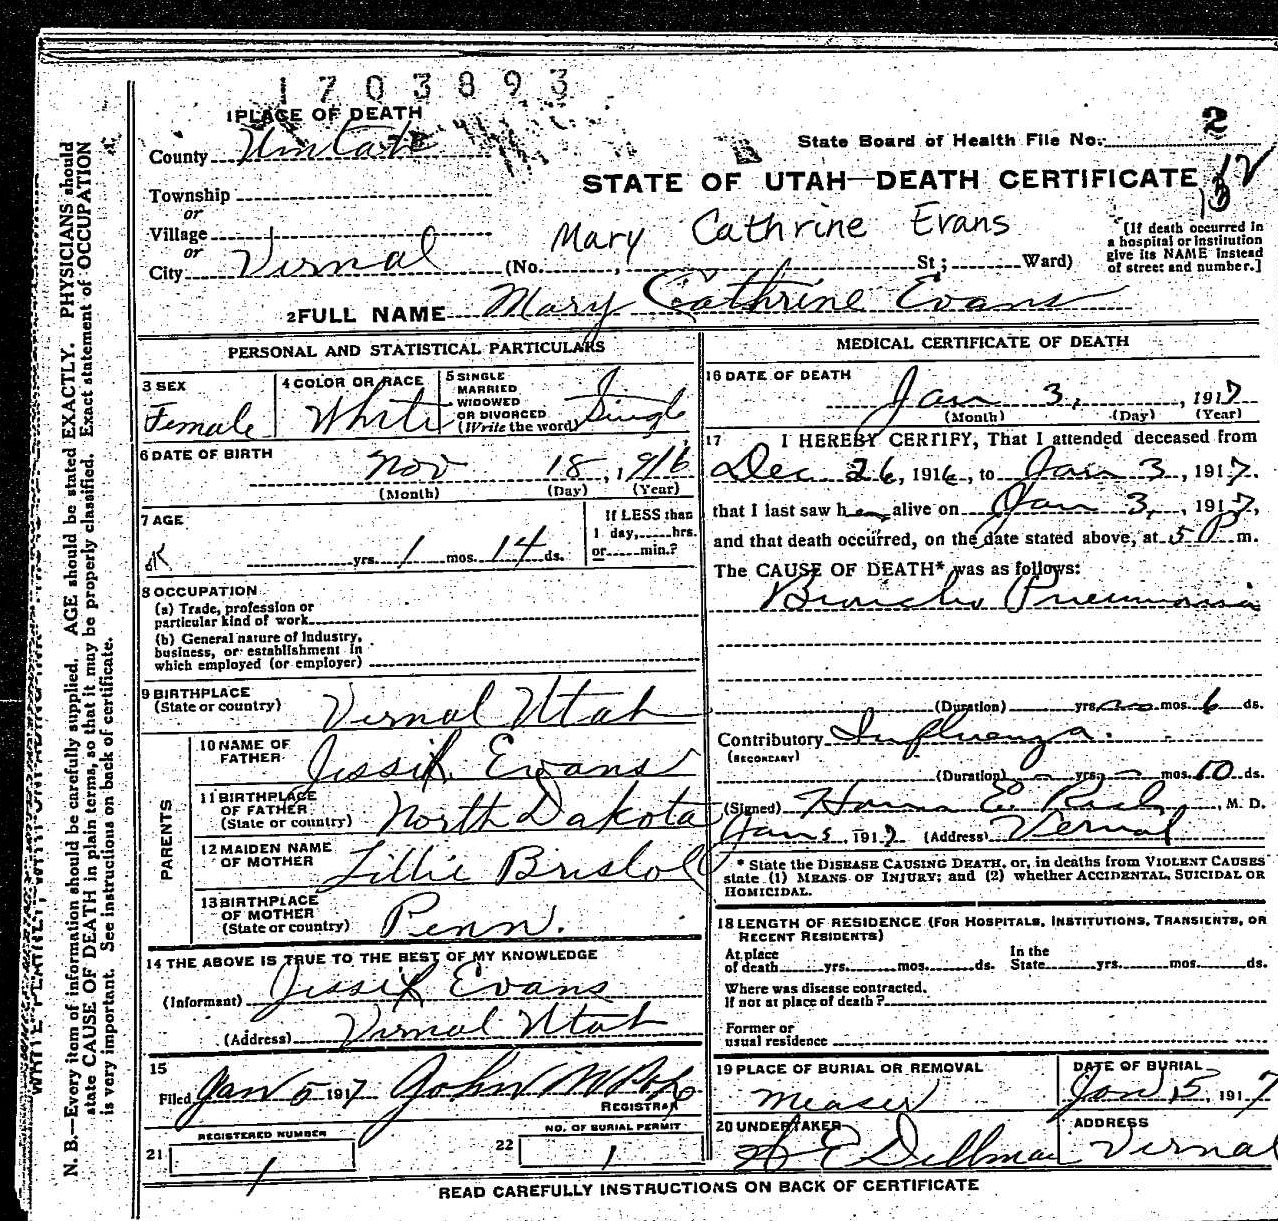 1703893
1 PLACE OF DEATH
County Uintah
State Board of Health File No. 2
Township
or
Village
or
City Vernal
STATE OF UTAH—DEATH CERTIFICATE
Mary Cathrine Evans
(No. , St; Ward)
[If death occurred in
a hospital or institution
give its NAME instead
of street and number.]
2 FULL NAME Mary Cathrine Evans
PERSONAL AND STATISTICAL PARTICULARS
3 SEX
Female
4 COLOR OR RACE
White
5 SINGLE
MARRIED
WIDOWED
OR DIVORCED
(Write the word) Single
6 DATE OF BIRTH
Nov 18, 1916
(Month) (Day) (Year)
7 AGE
yrs. 1 mos. 14 ds.
If LESS than
1 day, hrs.
or min.?
8 OCCUPATION
(a) Trade, profession or
particular kind of work
(b) General nature of Industry,
business, or establishment in
which employed (or employer)
9 BIRTHPLACE
(State or country) Vernal Utah
PARENTS
10 NAME OF
FATHER Evans
11 BIRTHPLACE
OF FATHER
(State or country) North Dakota
12 MAIDEN NAME
OF MOTHER Lillie Bristol
13 BIRTHPLACE
OF MOTHER
(State or country) Penn.
14 THE ABOVE IS TRUE TO THE BEST OF MY KNOWLEDGE
(Informant) Evans
(Address) Vernal Utah
15
Filed Jan 5 1917 John M Pope
REGISTRAR
21 REGISTERED NUMBER
1
22 NO. OF BURIAL PERMIT
1
MEDICAL CERTIFICATE OF DEATH
16 DATE OF DEATH
Jan 3, , 1917
(Month) (Day) (Year)
17 I HEREBY CERTIFY, That I attended deceased from
Dec 26, 1916, to Jan 3, 1917.
that I last saw her alive on Jan 3, , 1917,
and that death occurred, on the date stated above, at 5 P m.
The CAUSE OF DEATH* was as follows:
Broncho Pneumonia
(Duration) yrs. mos. 6 ds.
Contributory Influenza.
(SECONDARY)
(Duration) yrs. mos. 10 ds.
(Signed) E. Rich, M. D.
Jan , 1917 (Address) Vernal
* State the DISEASE CAUSING DEATH, or, in deaths from VIOLENT CAUSES
state (1) MEANS OF INJURY; and (2) whether ACCIDENTAL, SUICIDAL OR
HOMICIDAL.
18 LENGTH OF RESIDENCE (FOR HOSPITALS, INSTITUTIONS, TRANSIENTS, OR
RECENT RESIDENTS)
At place
of death yrs. mos. ds. In the
State yrs. mos. ds.
Where was disease contracted,
If not at place of death?
Former or
usual residence
19 PLACE OF BURIAL OR REMOVAL
Maeser
DATE OF BURIAL
Jan 5, 1917
20 UNDERTAKER
E Dillman
ADDRESS
Vernal
READ CAREFULLY INSTRUCTIONS ON BACK OF CERTIFICATE
WRITE PLAINLY, WITH UNFADING INK
N. B.—Every item of information should be carefully supplied. AGE should be stated EXACTLY. PHYSICIANS should
state CAUSE OF DEATH in plain terms, so that it may be properly classified. Exact statement of OCCUPATION
is very important. See instructions on back of certificate.